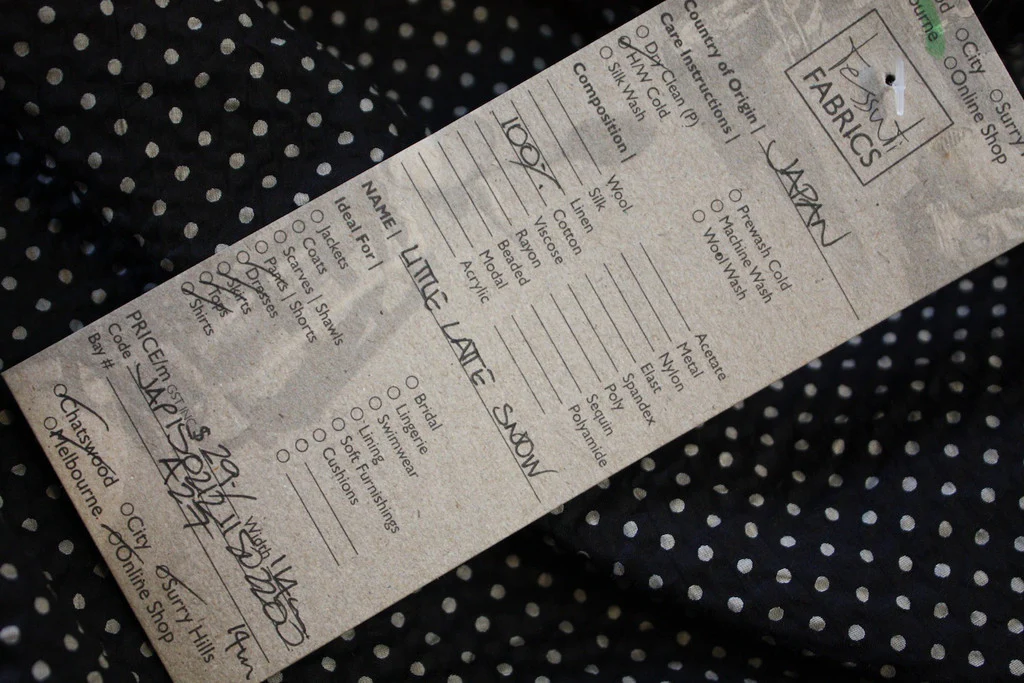 tessuti
FABRICS
City
Online Shop
Surry
Country of Origin | JAPAN
Care Instructions |
Dry Clean (P)
H/W Cold
Silk Wash
Prewash Cold
Machine Wash
Wool Wash
Composition |
Wool
Silk
Linen
100% Cotton
Viscose
Rayon
Beaded
Modal
Acrylic
Acetate
Metal
Nylon
Elast
Spandex
Poly
Sequin
Polyamide
NAME | LITTLE LATTE SNOW
Ideal For |
Jackets
Coats
Scarves | Shawls
Pants | Shorts
Dresses
Skirts
Tops
Shirts
Bridal
Lingerie
Swimwear
Lining
Soft Furnishings
Cushions
PRICE/m GST INC $29/ Width 114cm
Code
Bay # A227
Chatswood
Melbourne
City
Online Shop
Surry Hills
19m